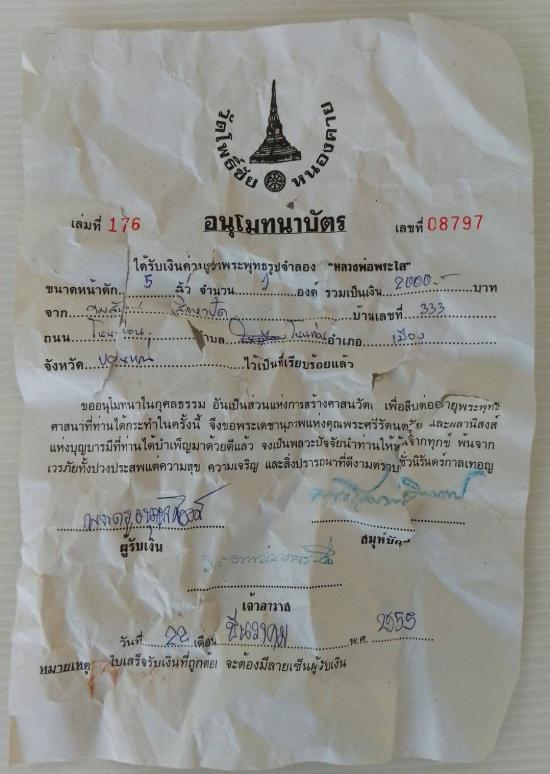 วัดโพธิ์ชัย หนองคาย
เล่มที่ 176 อนุโมทนาบัตร เลขที่ 08797
ได้รับเงินค่า พระพุทธรูปจำลอง "หลวงพ่อพระใส"
ขนาดหน้าตัก 5 นิ้ว จำนวน 1 องค์ รวมเป็นเงิน 2000.- บาท
จาก บ้านเลขที่ 333
ถนน ตำบล อำเภอ เมือง
จังหวัด ไว้เป็นที่เรียบร้อยแล้ว
ขออนุโมทนาในกุศลธรรม อันเป็นส่วนแห่งการสร้างศาสนวัตถุ เพื่อสืบต่ออายุพระพุทธ
ศาสนาที่ท่านได้กระทำในครั้งนี้ จึงขอพระเดชานุภาพแห่งคุณพระศรีรัตนตรัย และผลานิสงส์
แห่งบุญบารมีที่ท่านได้บำเพ็ญมาด้วยดีแล้ว จงเป็นพลวะปัจจัยนำท่านให้พ้นจากทุกข์ พ้นจาก
เวรภัยทั้งปวงประสพแต่ความสุข ความเจริญ และสิ่งปรารถนาที่ดีงามตราบชั่วนิรันดร์กาลเทอญ
ผู้รับเงิน
สมุห์บัญ
เจ้าอาวาส
วันที่ 22 เดือน ธันวาคม พ.ศ. 2555
หมายเหตุ ใบเสร็จรับเงินที่ถูกต้อง จะต้องมีลายเซ็นผู้รับเงิน